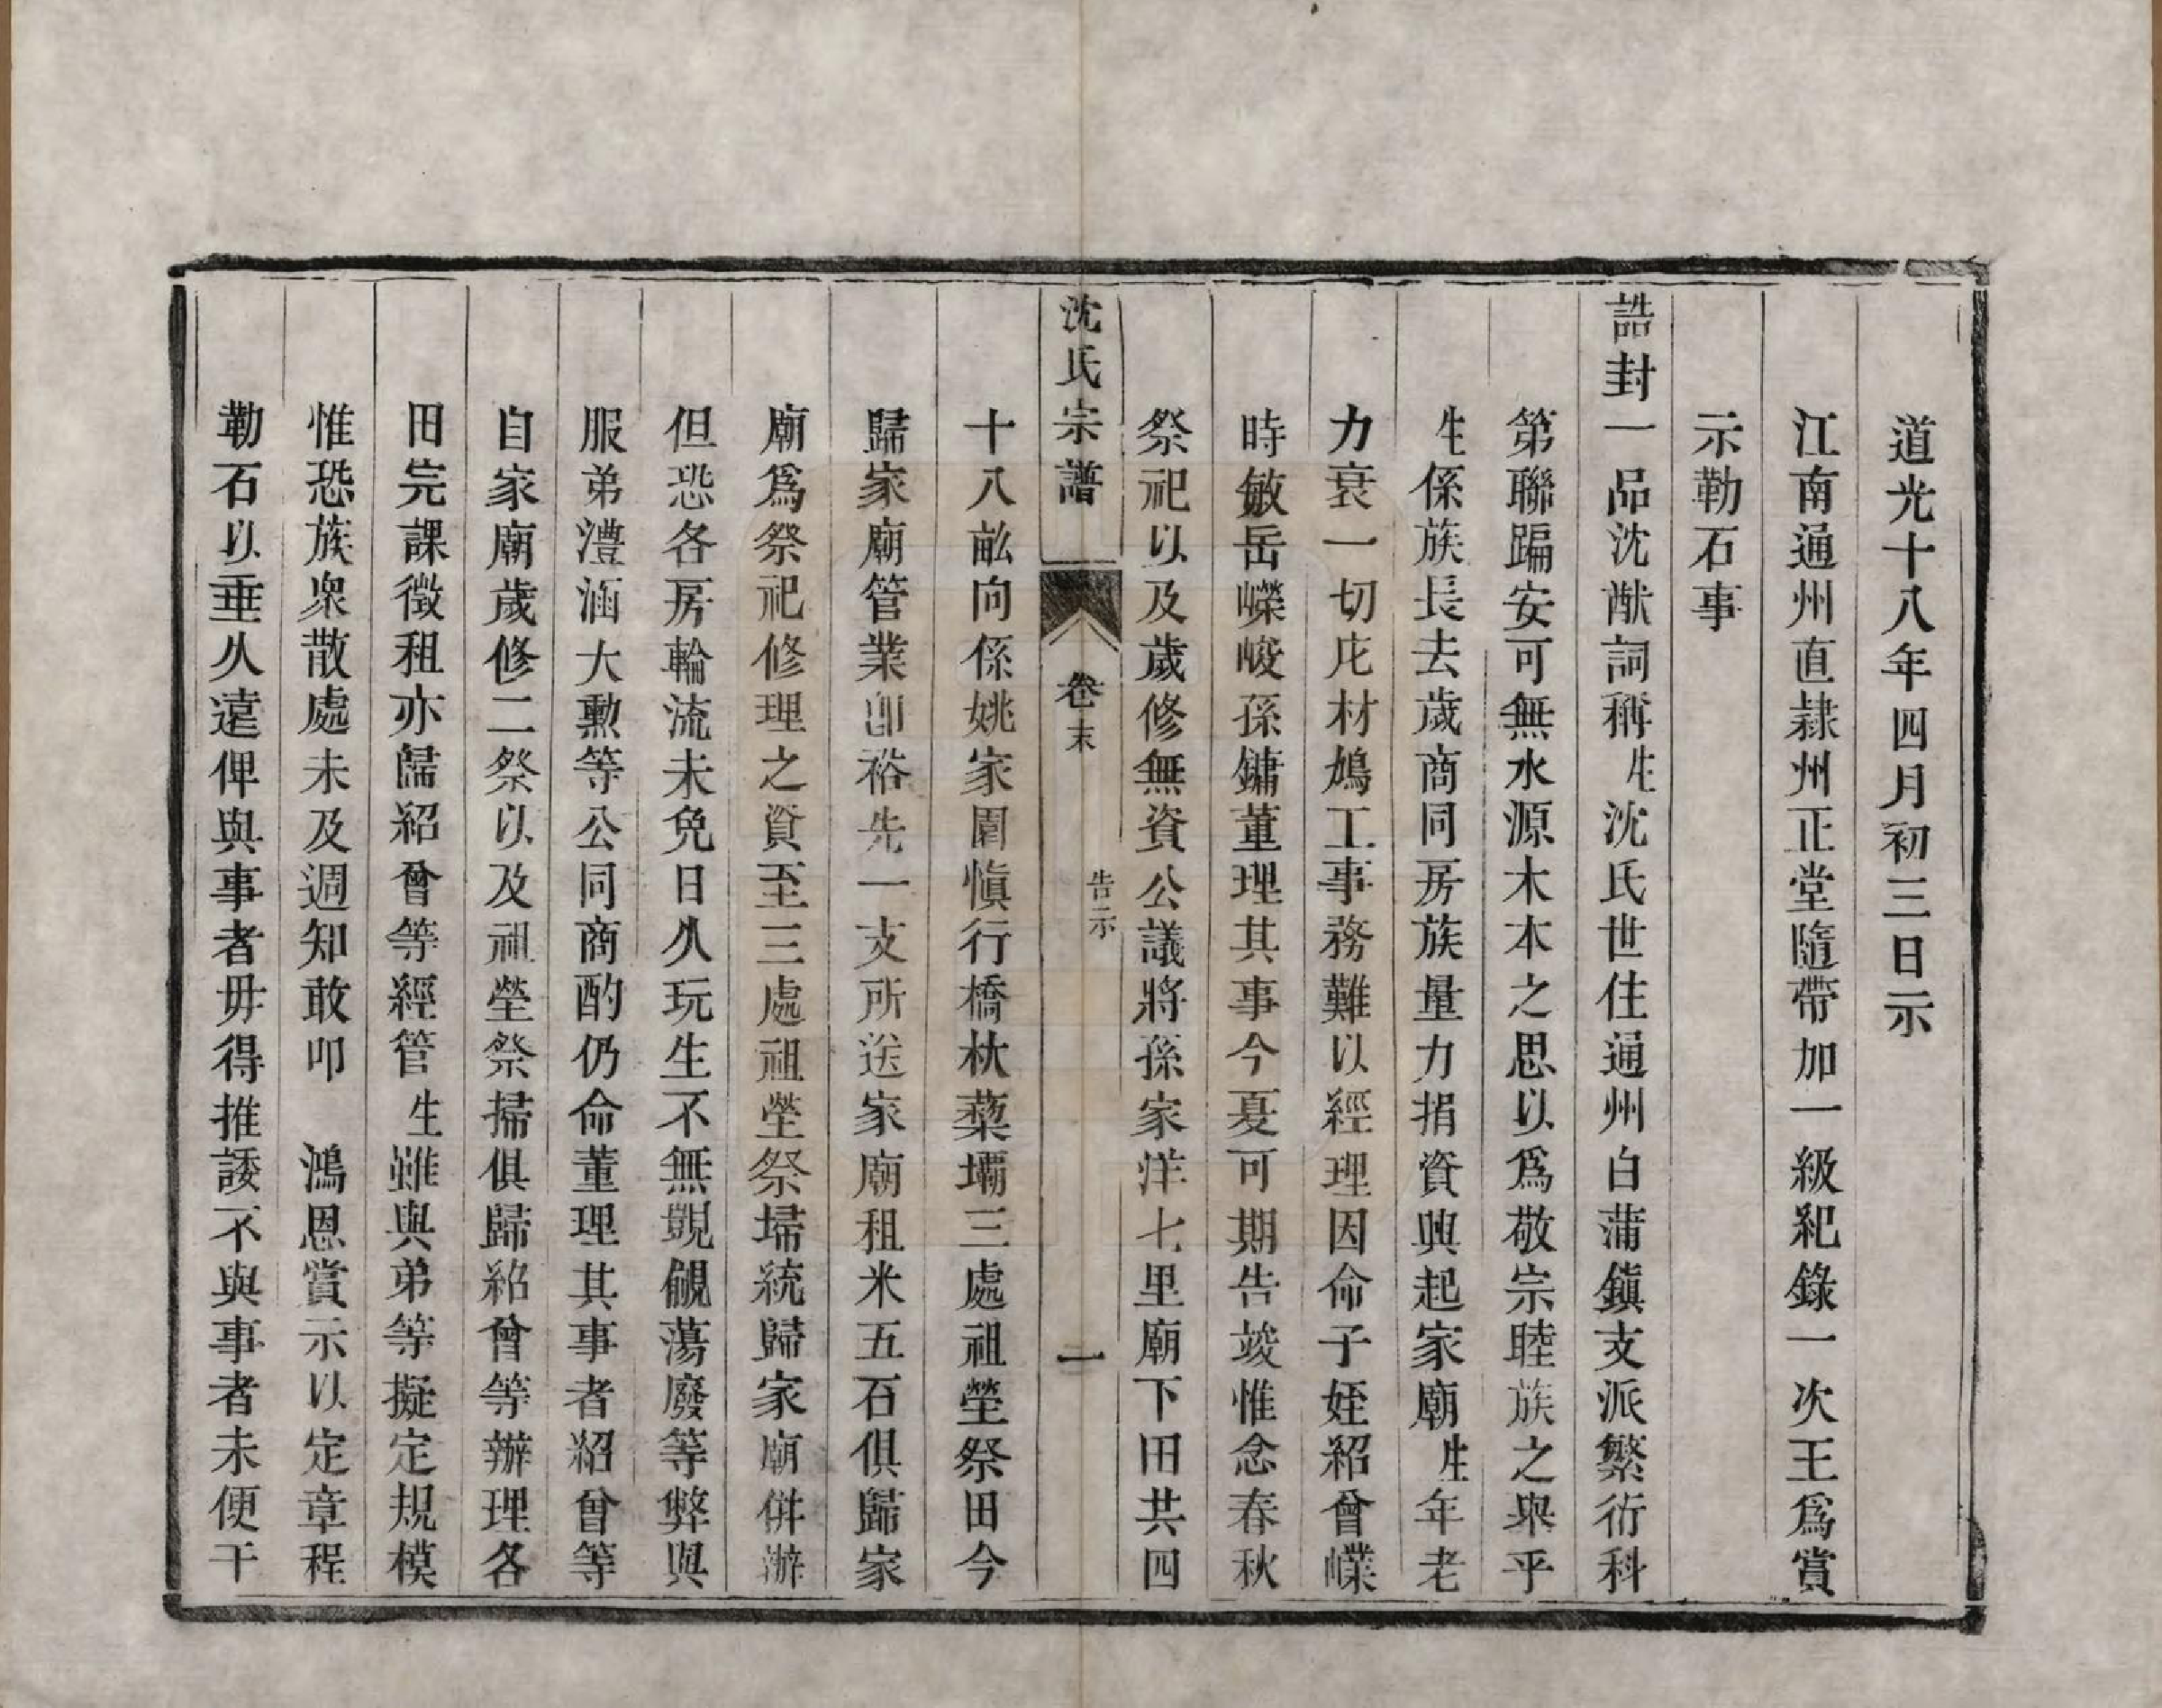 道光十八年四月初三日示
江南通州直隷州正堂隨帶加一級紀錄一次王爲賞
示勒石事
誥封一品沈猷詞稱生沈氏世住通州白蒲鎭支派繁衍科
第聯蹁安可無水源木本之思以爲敬宗睦族之舉乎
生係族長去歲商同房族量力捐資興起家廟生年老
力衰一切庀材鳩工事務難以經理因命子姪紹曾嶫
時敏岳嶸峻孫鏞董理其事今夏可期告竣惟念春秋
祭祀以及歲修無資公議將孫家洋七里廟下田共四
沈氏宗譜
卷末
告示
一
十八畝向係姚家園愼行橋杕蘃壩三處祖塋祭田今
歸家廟管業卽裕先一支所送家廟租米五石俱歸家
廟爲祭祀修理之資至三處祖塋祭埽統歸家廟併辦
但恐各房輪流未免日久玩生不無覬覦蕩廢等弊與
服弟灃涵大勲等公同商酌仍命董理其事者紹曾等
自家廟歲修二祭以及祖塋祭掃俱歸紹曾等辦理各
田完課徵租亦歸紹曾等經管生雖與弟等擬定規模
惟恐族衆散處未及週知敢叩 鴻恩賞示以定章程
勒石以垂久遠俾與事者毋得推諉不與事者未便干